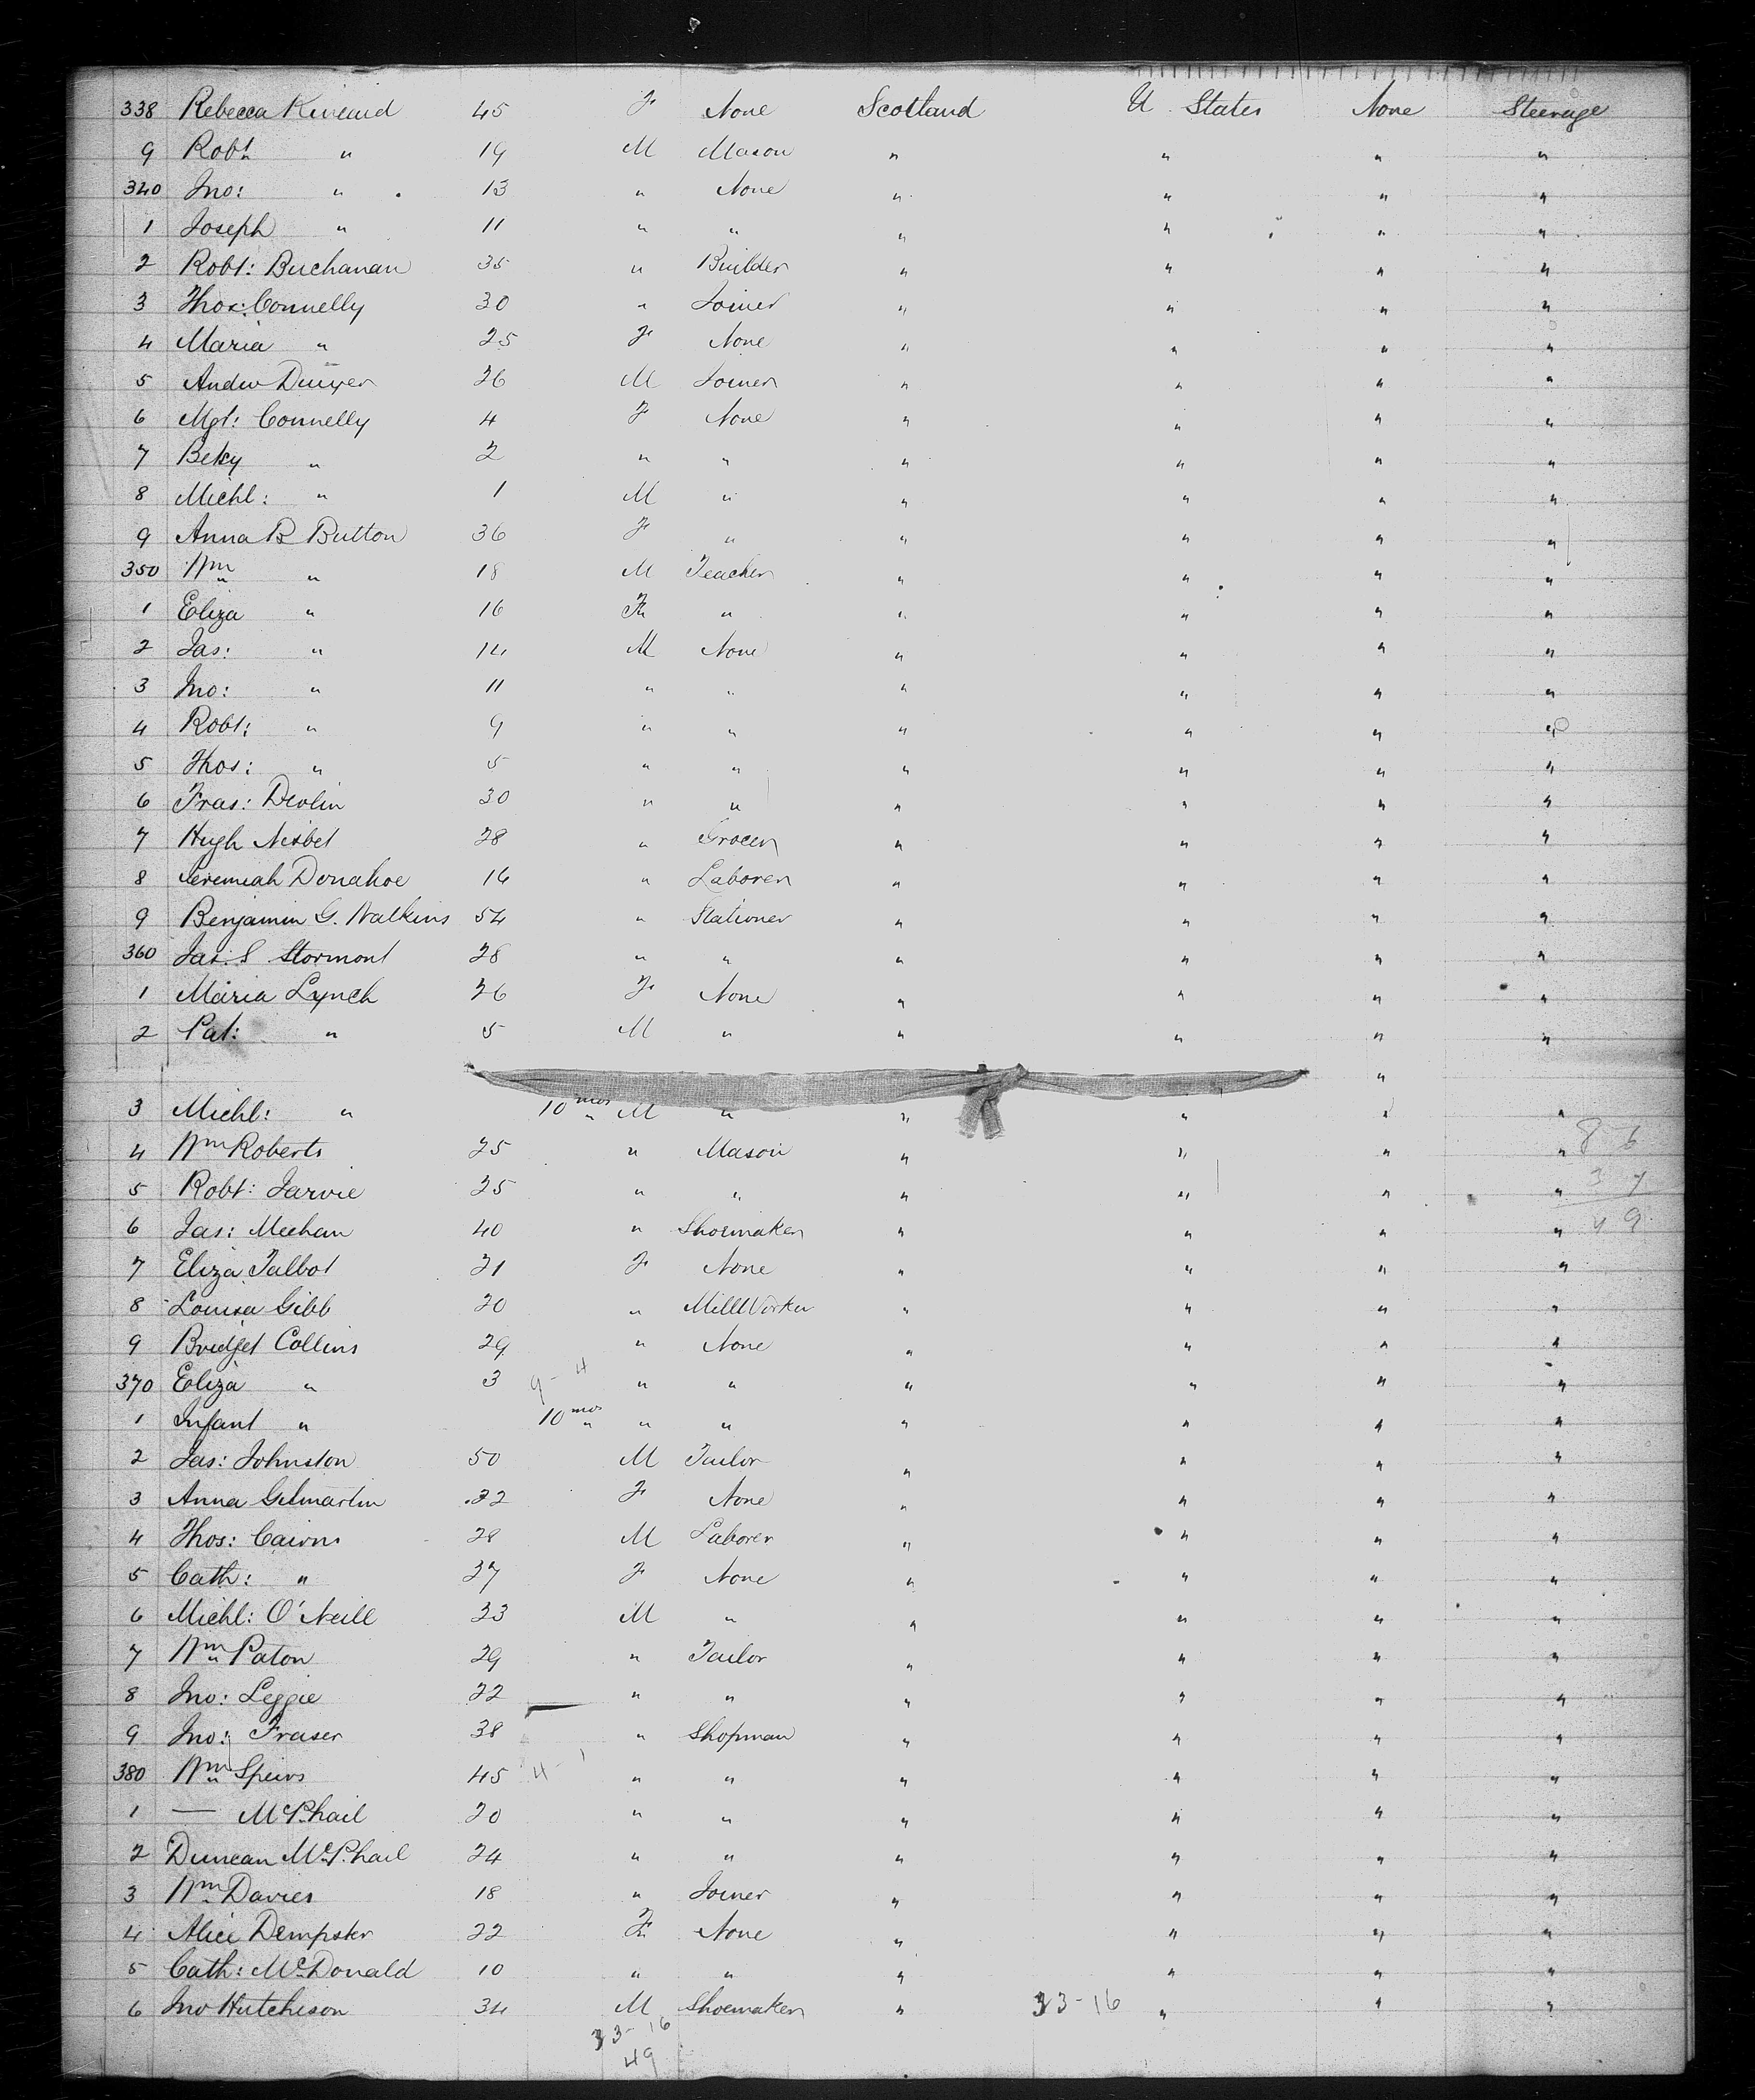 338 Rebecca Kincaid 45 F None Scotland U States None Steerage
9 Robt " 19 M Mason " " " "
340 Jno: " 13 " None " " " "
1 Joseph " 11 " " " " " "
2 Robt: Buchanan 35 " Builder " " " "
3 Thos: Connelly 30 " Joiner " " " "
4 Maria " 25 F None " " " "
5 Andw Dwyer 26 M Joiner " " " "
6 Mgt: Connelly 4 F None " " " "
7 Beky " 2 " " " " " "
8 Michl: " 1 M " " " " "
9 Anna B Button 36 F " " " " "
350 Wm " 18 M Teacher " " " "
1 Eliza " 16 F " " " " "
2 Jas: " 14 M None " " " "
3 Jno: " 11 " " " " " "
4 Robt: " 9 " " " " " "
5 Thos: " 5 " " " " " "
6 Fras: Devlin 30 " " " " " "
7 Hugh Nisbet 28 " Grocer " " " "
8 Jeremiah Donahoe 16 " Laborer " " " "
9 Benjamin G. Watkins 54 " Stationer " " " "
360 Jas. S Stormont 28 " " " " " "
1 Maria Lynch 26 F None " " " "
2 Pat: " 5 M " " " " "
"
3 Michl: " 10 mos M " " " " "
4 Wm Roberts 25 " Mason " " " " 8 6
5 Robt: Jarvie 25 " " " " " " 3 7
6 Jas: Meehan 40 " Shoemaker " " " " 4 9
7 Eliza Talbot 21 F None " " " "
8 Louisa Gibb 20 " MillWorker " " " "
9 Bridget Collins 29 " None " " " "
370 Eliza " 3 9-4 " " " " " "
1 Infant " 10 mos " " " " " "
2 Jas: Johnston 50 M Tailor " " " "
3 Anna Gilmartin 32 F None " " " "
4 Thos: Cairns 28 M Laborer " " " "
5 Cath: " 27 F None " " " "
6 Michl: O'Neill 23 M " " " " "
7 Wm Paton 29 " Tailor " " " "
8 Jno: Leggie 22 " " " " " "
9 Jno: Fraser 38 " Shopman " " " "
380 Wm Speirs 45 4-1 " " " " " "
1 — McPhail 20 " " " " " "
2 Duncan McPhail 24 " " " " " "
3 Wm Davies 18 " Joiner " " " "
4 Alice Dempster 22 F None " " " "
5 Cath: McDonald 10 " " " " " "
6 Jno Hutchison 34 M Shoemaker " 33-16 " " "
33-16
49